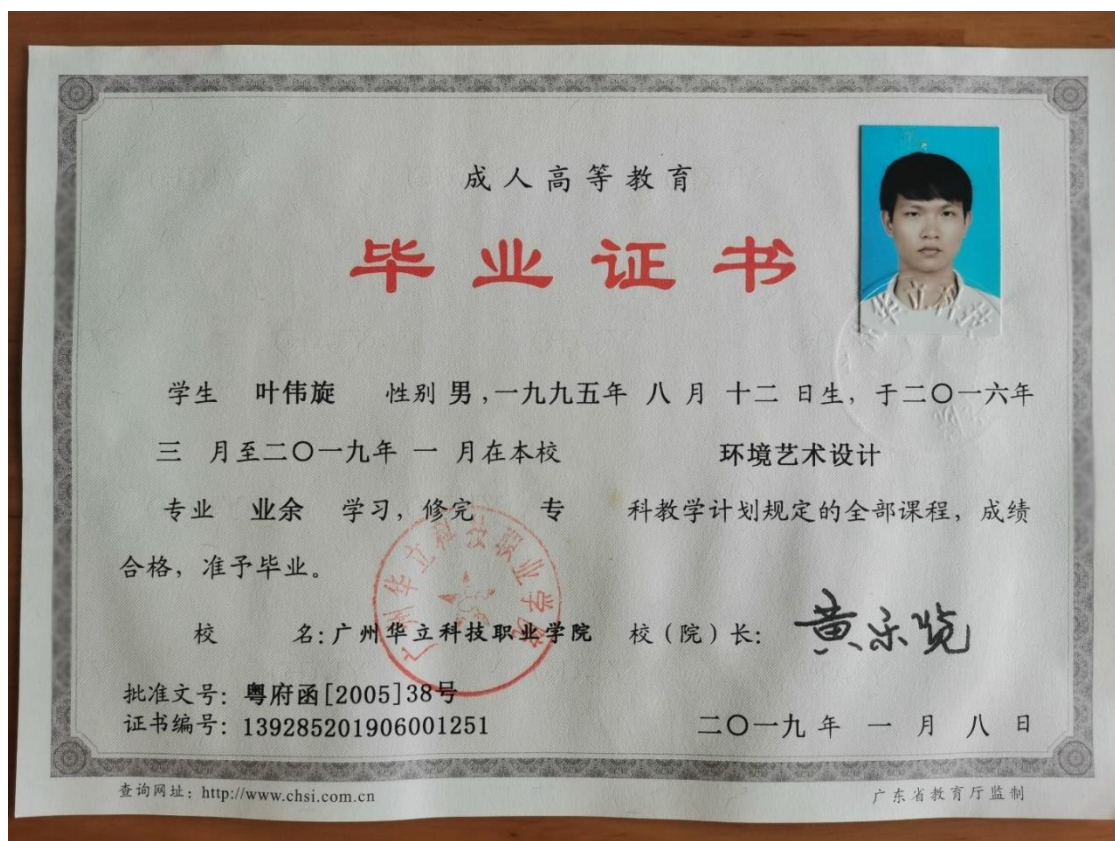 成人高等教育
毕业证书
学生 叶伟旋 性别 男,一九九五年 八 月 十二 日生, 于二〇一六年
三 月至二〇一九年 一 月在本校 环境艺术设计
专业 业余 学习, 修完 专 科教学计划规定的全部课程, 成绩
合格, 准予毕业。
校 名: 广州华立科技职业学院 校(院)长: 黄乐览
广州华立科技职业学院
批准文号: 粤府函[2005]38号
证书编号: 139285201906001251 二〇一九 年 一 月 八 日
查询网址: http://www.chsi.com.cn 广东省教育厅监制